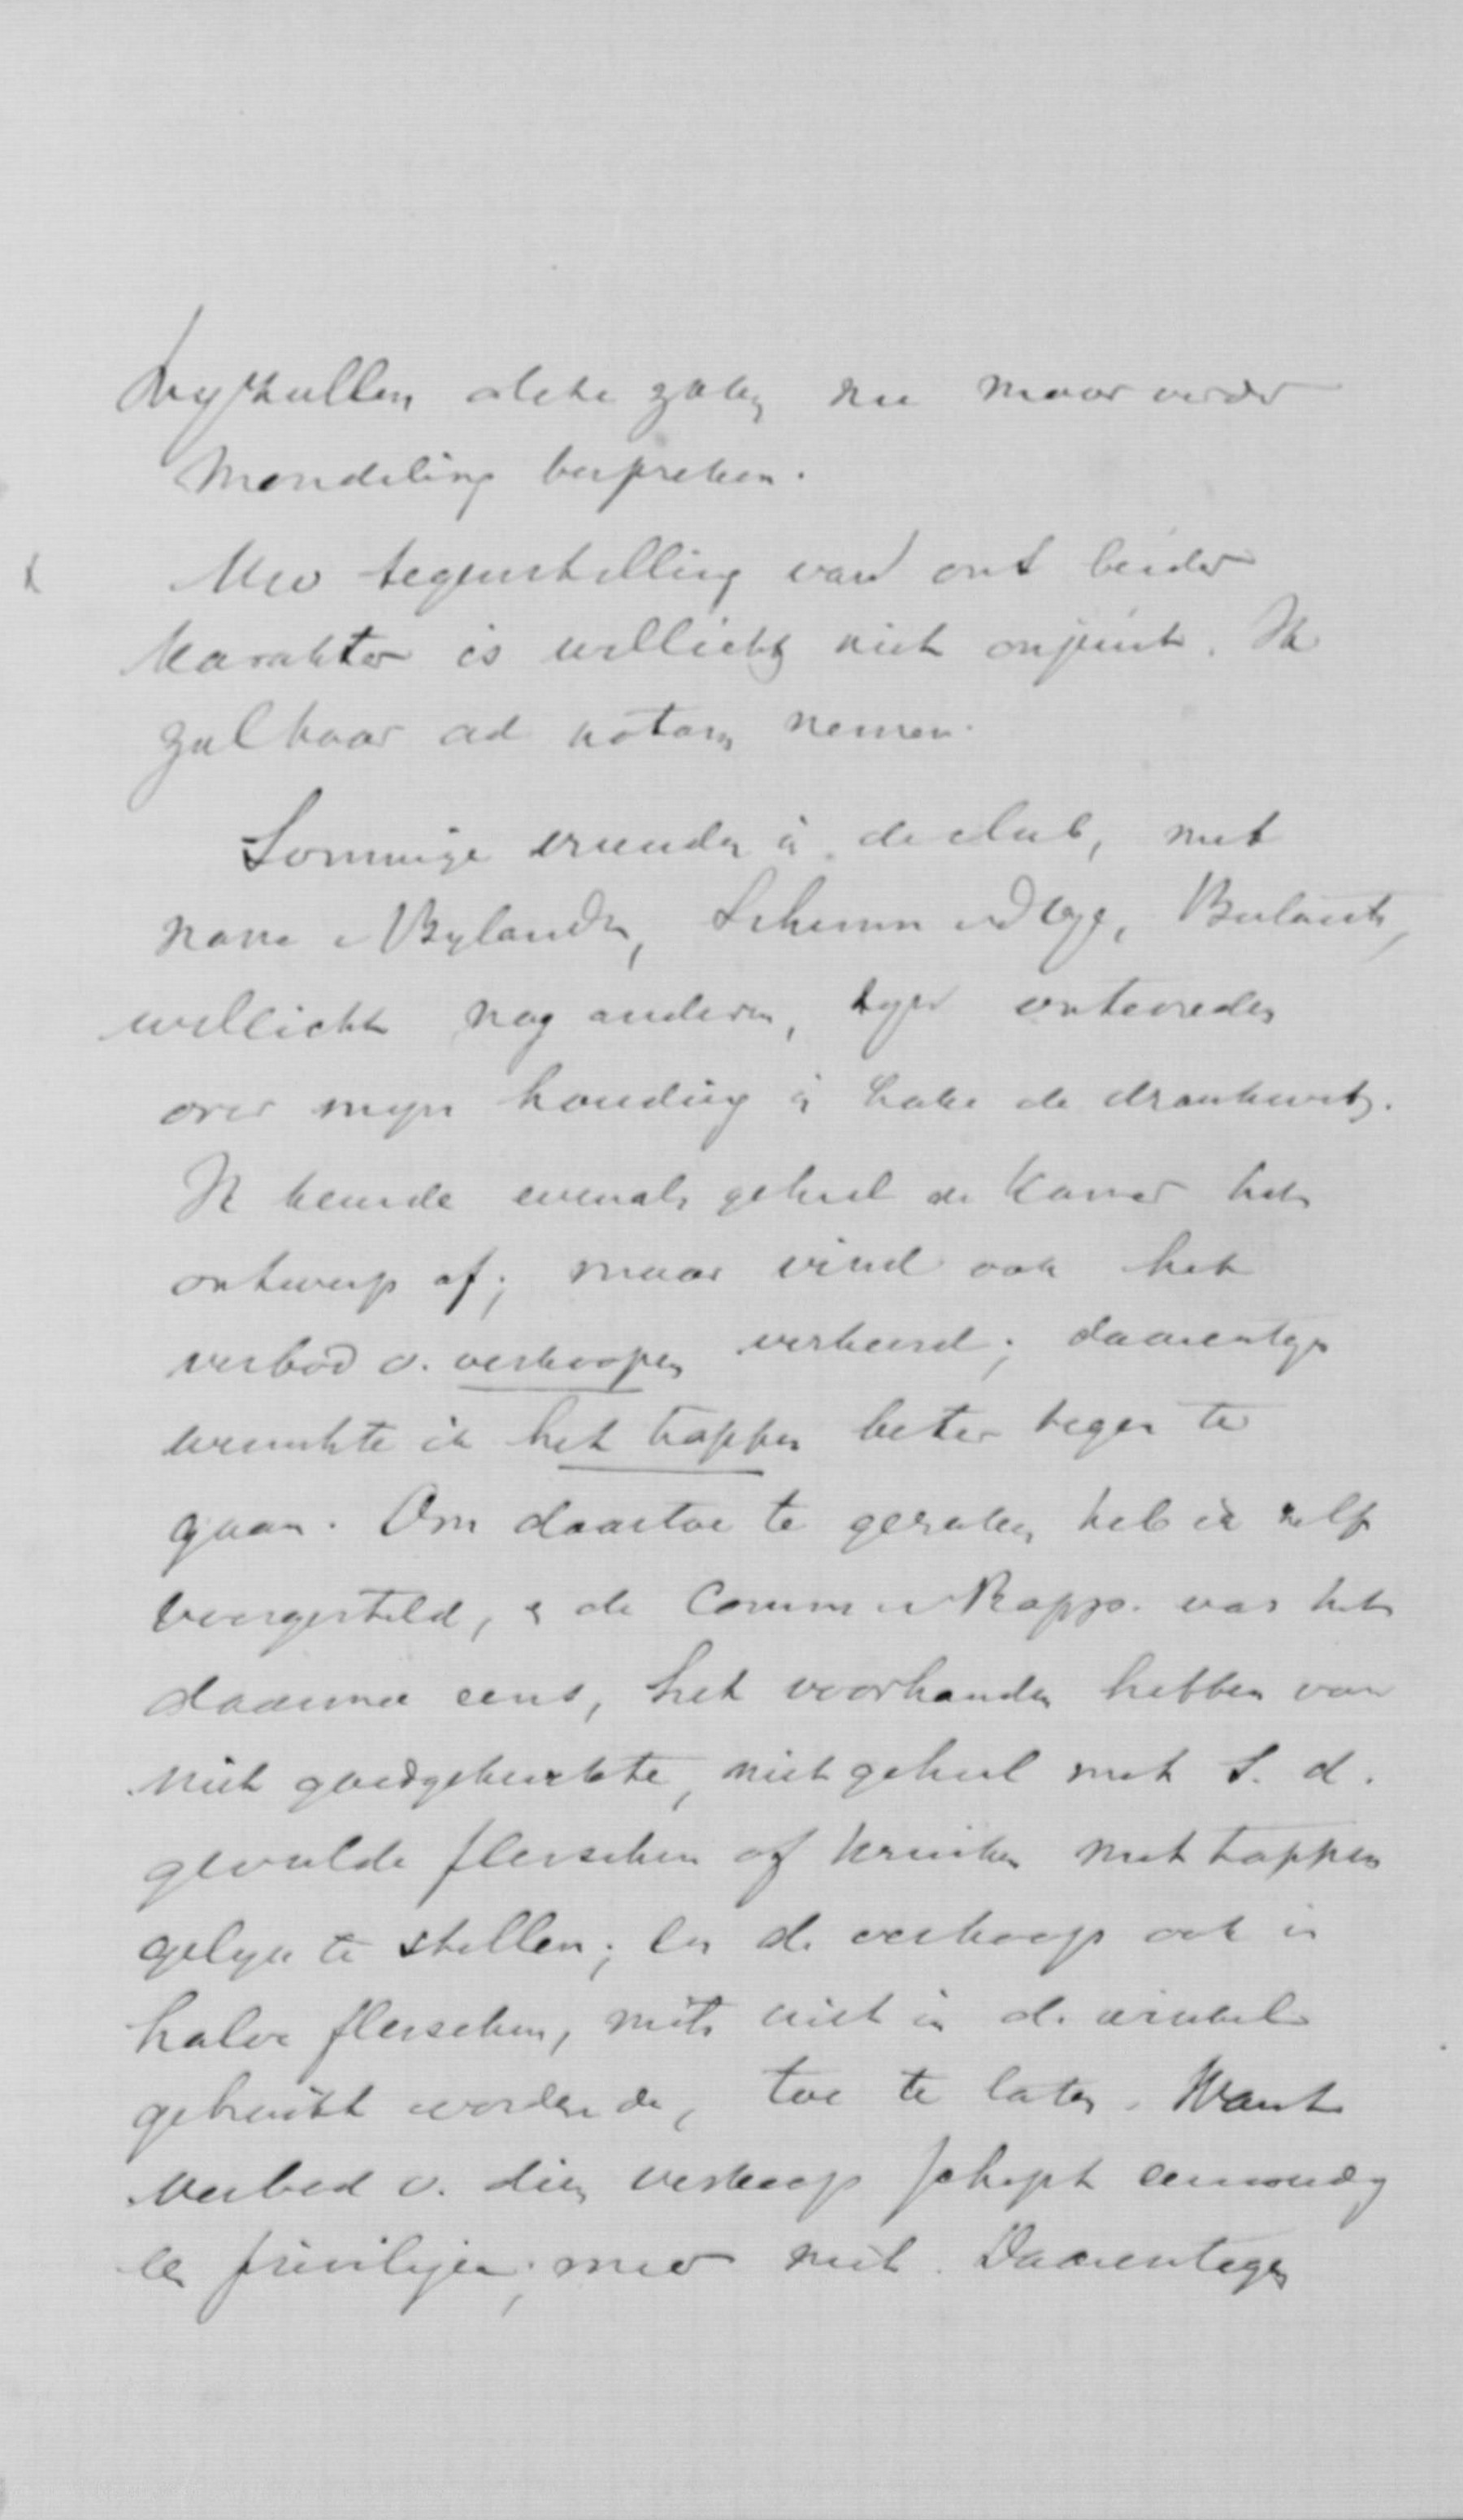 Wy zullen deze zaken nu maar verder
mondeling bespreken.
Uw tegenstelling van ons beider
karakter is wellicht niet onjuist. Ik
zal haar ad notam nemen.
Sommige vrienden in de club, met
name v Bylandt, Schimm vd Oye, Beelaerts,
wellicht nog anderen, zyn ontevreden
over myn houding in zake de drankwet.
Ik keurde evenals geheel de Kamer het
ontwerp af; maar vind ook het
verbod v. verkoopen verkeerd; daarentegen
wenschte ik het tappen beter tegen te
gaan. Om daartoe te geraken heb ik zelf
voorgesteld, en de Comm v Rapp. was het
daarmee eens, het voorhanden hebben van
niet goedgekurkte, niet geheel met S. d.
gevulde flesschen of kruiken met tappen
gelyk te stellen; en de verkoop ook in
halve flesschen, mits niet in de winkel
gebruikt wordende, toe te laten. Want
verbod v. dien verkoop schept eenvoudig
een privilegie; meer niet. Daarentegen